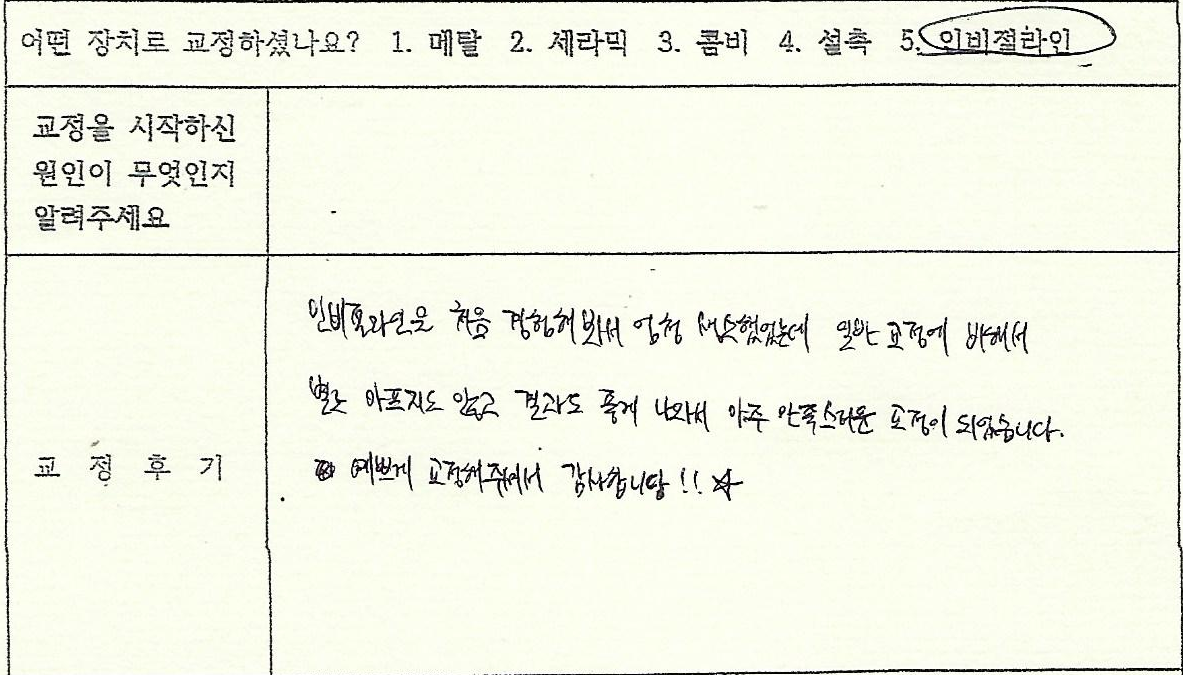 어떤 장치로 교정하셨나요? 1. 메탈 2. 세라믹 3. 콤비 4. 설측 5. 인비절라인
교정을 시작하신
원인이 무엇인지
알려주세요
처음 경험해봐서 엄청 생소했었는데 일반 교정에 비해서
별로 아프지도 않고 결과도 좋게 나와서 아주 만족스러운 교정이 되었습니다.
교 정 후 기
예쁘게 교정해주셔서 감사합니당!! ☆